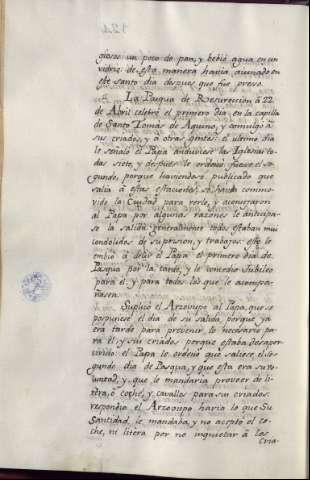 gioso: un poco de pan, y bebió agua en un
vidrio: de esta manera havia ayunado en
este santo dia despues que fue preso.
La Pasqua de Resurrección á 22
de Abril celebró el primero dia en la capilla
de Santo Tomás de Aquino, y comulgó á
sus criados, y á otras gentes: el ultimo dia
le señaló el Papa anduviese las Iglesias to
das siete, y despues le ordenó fuese el se
gundo, porque haviendose publicado que
salia á estas estaciones, se havia conmo-
vido la Ciudad para verlo, y aconsejaron
al Papa por algunas razones le anticipa-
se la salida: generalmente todos estaban mui
condolidos de su prision, y trabajos: esto le
embió á decir el Papa el primero dia de
Pasqua por la tarde, y le concedio Jubileo
para él, y para todos los que le acompa-
ñasen.
Suplicó el Arzobispo al Papa, que se
pospusiese el dia de su salida, porque ya
era tarde para prevenir lo necesario pa
ra él, y sus criados porque estaba desaper
civido: el Papa le ordenó que saliese el se-
gundo dia de Pasqua, y que esta era su vo-
luntad, y que le mandaria proveer de li-
tera, ó coche, y cavallos para sus criados:
respondio el Arzobispo haria lo que Su
Santidad le mandaba, y no aceptó el co-
che, ni litera por no inquietar á los
cria-